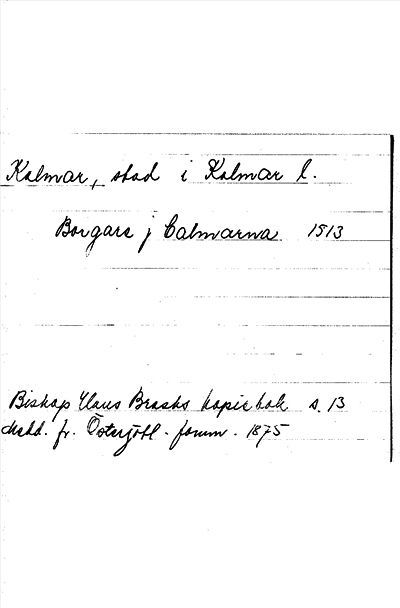 Kalmar, stad i Kalmar l.
Borgare j Calmarna 1513
Biskop Hans Brasks kopiebok s. 13
Medd. fr. Östergötl. fornm. 1875